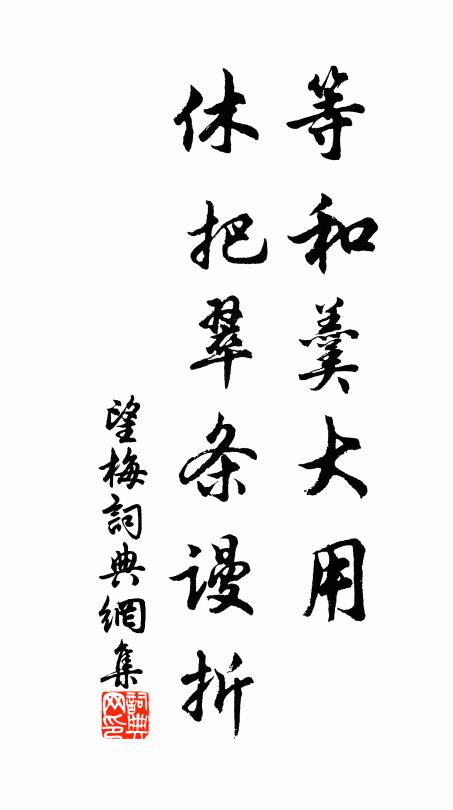 等和羹大用
休把翠条谩折
望梅詞典網集
詞典网印